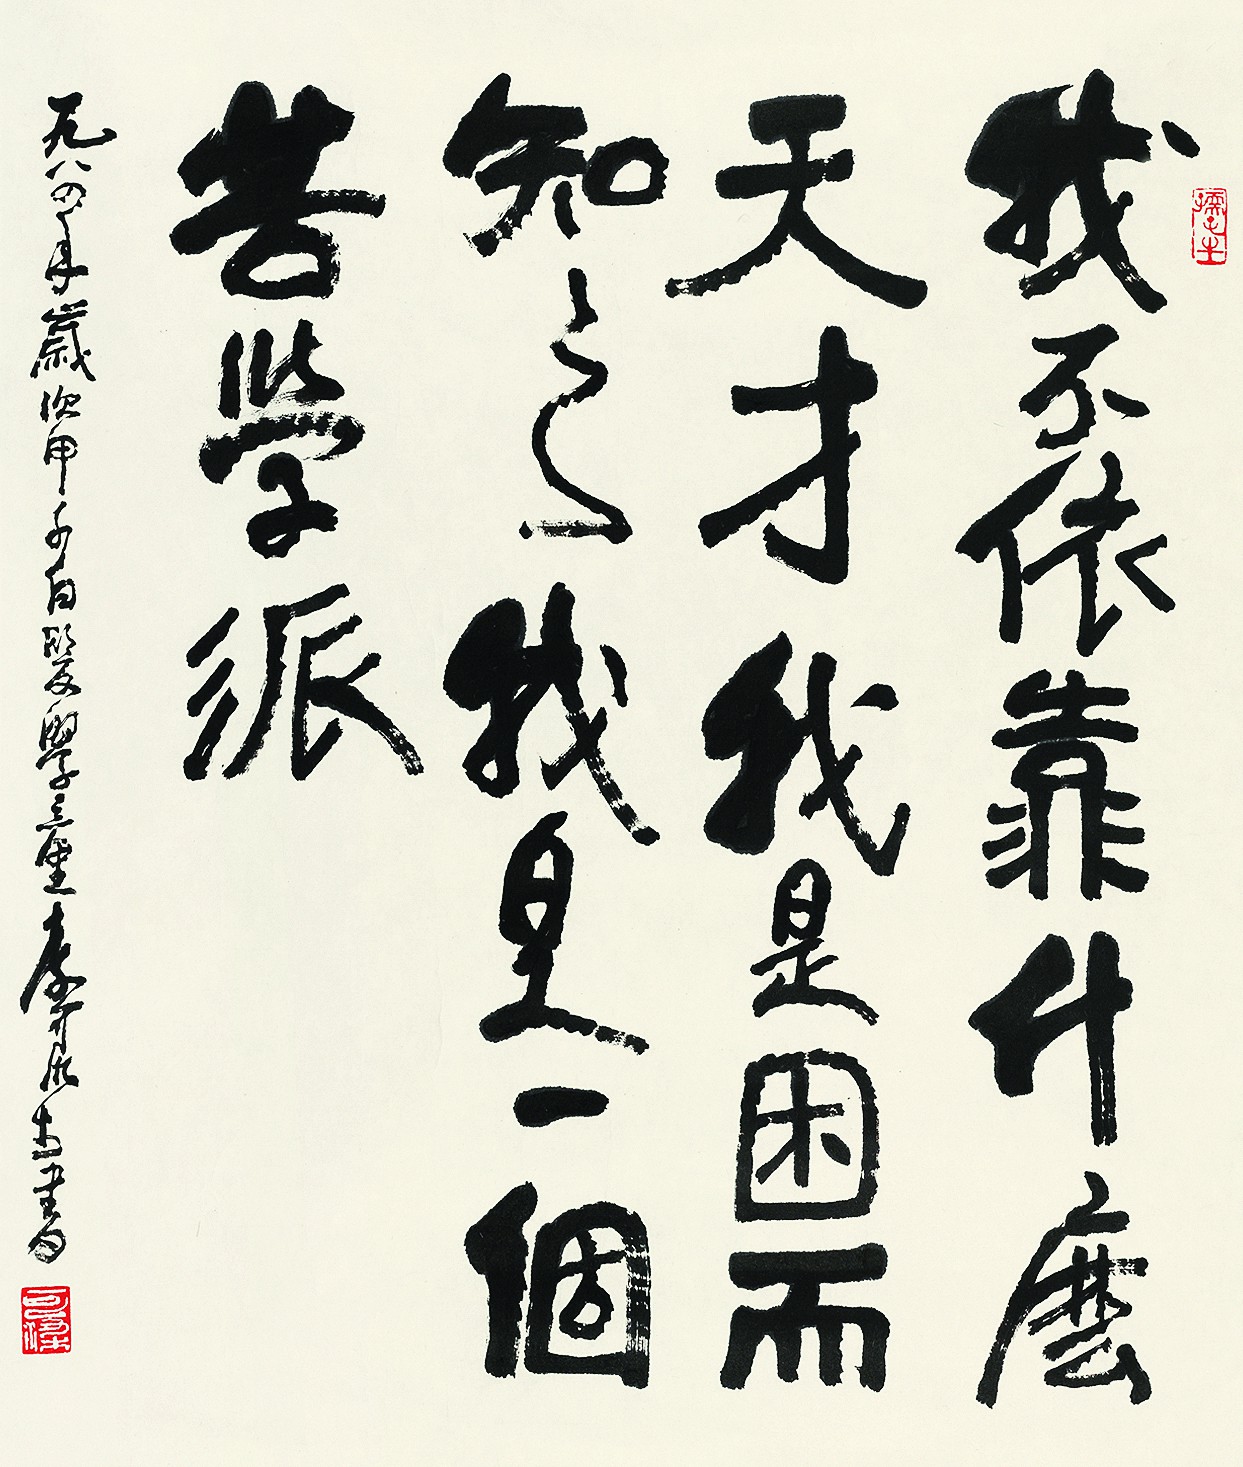 孺子牛
我不依靠什麼
天才我是困而
知之我是一個
苦學派
一九八四年歲次甲子白髮學童李可染書
可染